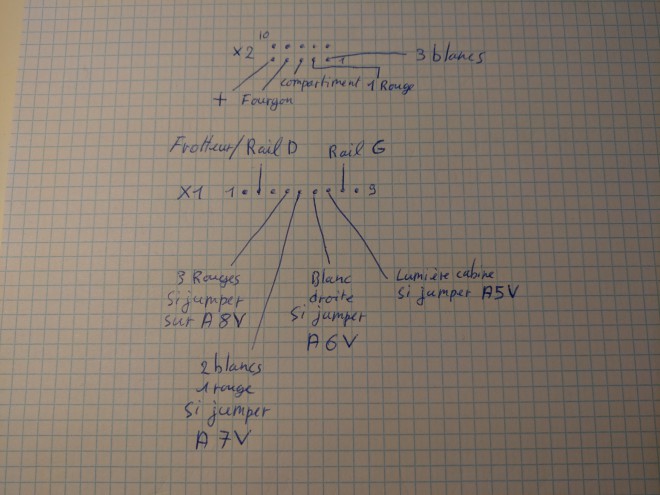 10
X2
1
3 blancs
compartiment 1 Rouge
+ Fourgon
Frotteur/Rail D
Rail G
X1 1 9
3 Rouges
Si jumper
sur A8V
Blanc
droite
Si jumper
A6V
Lumière cabine
Si jumper A5V
2 blancs
1 rouge
Si jumper
A 7V